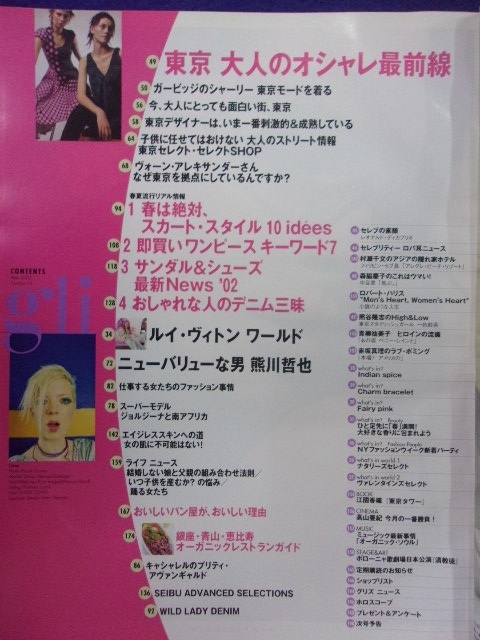 49 東京 大人のオシャレ最前線
50 ガービッジのシャーリー 東京モードを着る
56 今、大人にとっても面白い街、東京
58 東京デザイナーは、いま一番刺激的&成熟している
64 子供に任せてはおけない 大人のストリート情報
東京セレクト・セレクトSHOP
68 ヴォーン・アレキサンダーさん
なぜ東京を拠点にしているんですか?
春夏流行リアル情報
94 1 春は絶対、
スカート・スタイル 10 idées
108 2 即買いワンピース キーワード7
118 3 サンダル&シューズ
最新News '02
128 4 おしゃれな人のデニム三昧
34 ルイ・ヴィトン ワールド
72 ニューバリューな男 熊川哲也
87 仕事する女たちのファッション事情
78 スーパーモデル
ジョルジーナと南アフリカ
142 エイジレススキンへの道
女の肌に不可能はない!
159 ライフ ニュース
結婚しない娘と父親の組み合わせ法則/
いつ子供を産むか?の悩み/
踊る女たち
167 おいしいパン屋が、おいしい理由
174 銀座・青山・恵比寿
オーガニックレストランガイド
86 キャシャレルのプリティ・
アヴァンギャルド
136 SEIBU ADVANCED SELECTIONS
92 WILD LADY DENIM
CONTENTS
gli
セレブの素顔
レオナルド・ディカプリオ
セレブリティー ロバ耳ニュース
村瀬千文のアジアの隠れ家ホテル
森脇慶子のこれはウマい!
ロバート・ハリス
"Men's Heart, Women's Heart"
熊谷隆志のHigh&Low
齋藤薫 ヒロインの流儀
what's in?
Indian spice
what's in?
Charm bracelet
what's in?
Fairy pink
what's in? Beauty
ひと足先に「春」満開!
大好きな香りに包まれよう
what's in? Fashion People
NYファッションウイーク新着パーティ
what's in world 1
ナタリーズセレクト
what's in world 2
ヴァレンタインズセレクト
BOOK
江國香織 「東京タワー」
CINEMA
高山亜紀 今月の一番勝負!
MUSIC
ミュージック最新事情
「オーガニック・ソウル」
STAGE&ART
定期購読のお知らせ
ショップリスト
グリズ ニュース
ホロスコープ
プレゼント&アンケート
次号予告